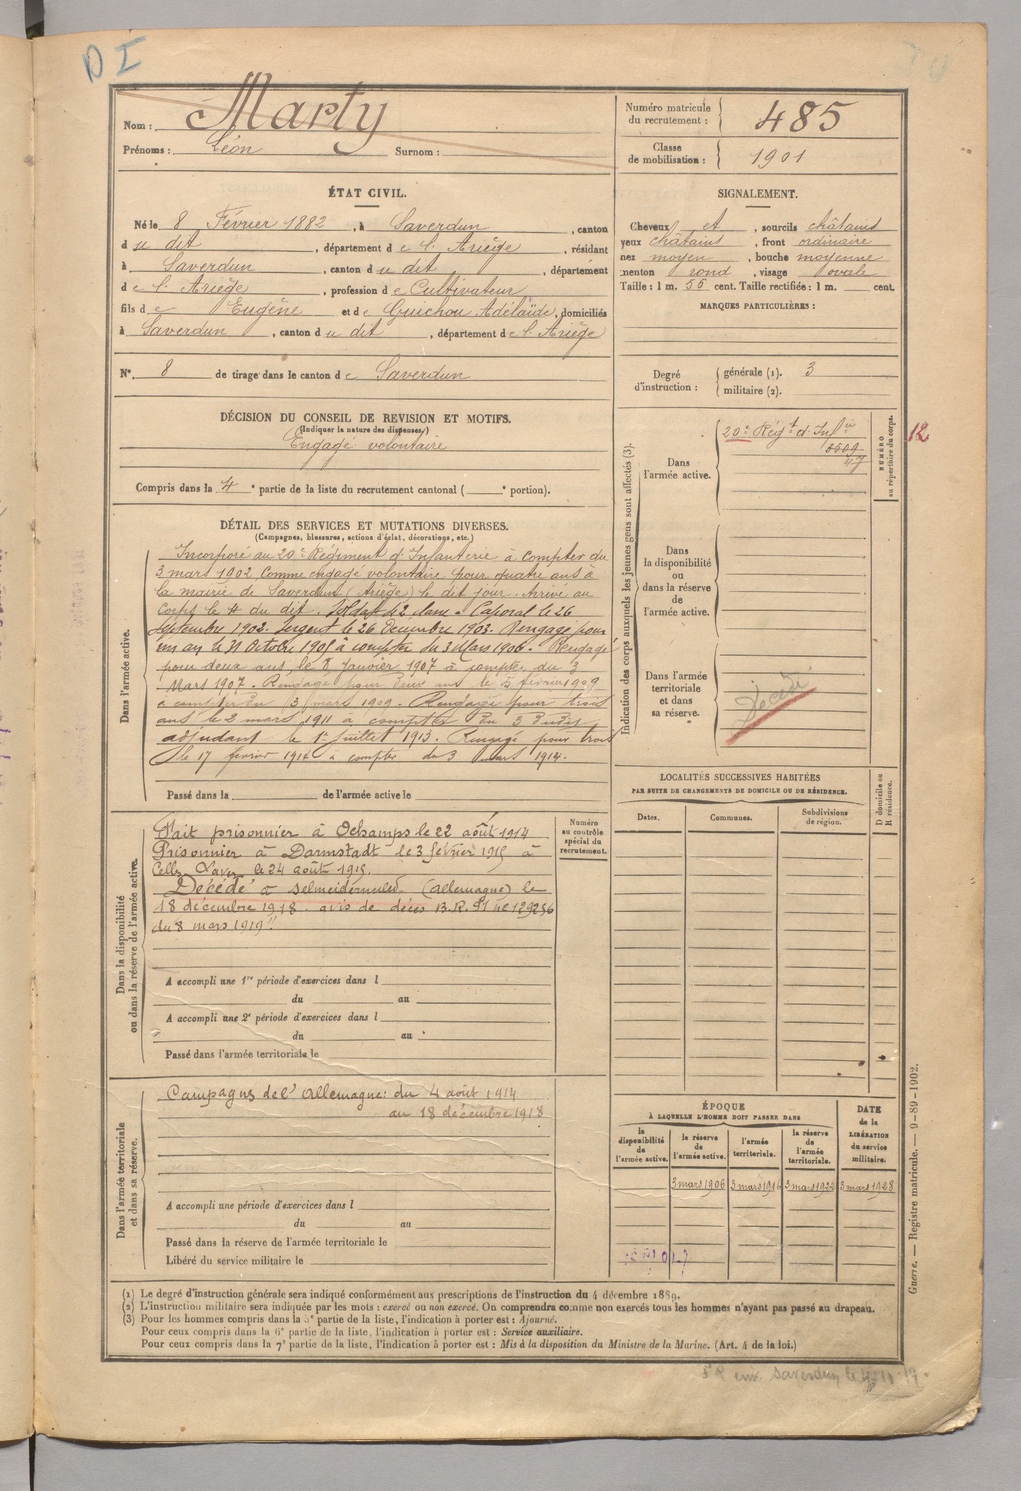 D I
Nom : Marty
Prénoms : Léon Surnom :
Numéro matricule du recrutement : 485
Classe de mobilisation : 1901
ÉTAT CIVIL.
Né le 8 Février 1882, à Saverdun, canton
du dit, département de l'Ariège, résidant
à Saverdun, canton du dit, département
de l'Ariège, profession de Cultivateur
fils de Eugène et de Guichou Adélaïde, domiciliés
à Saverdun, canton du dit, département de l'Ariège
N° 8 de tirage dans le canton de Saverdun
SIGNALEMENT.
Cheveux et, sourcils châtains
yeux châtains, front ordinaire
nez moyen, bouche moyenne
menton rond, visage ovale
Taille : 1 m. 56 cent. Taille rectifiée : 1 m. cent.
MARQUES PARTICULIÈRES :
Degré d'instruction : générale (1). 3
militaire (2).
DÉCISION DU CONSEIL DE REVISION ET MOTIFS.
(Indiquer la nature des dispenses.)
Engagé volontaire
Compris dans la 4e partie de la liste du recrutement cantonal ( e portion).
DÉTAIL DES SERVICES ET MUTATIONS DIVERSES.
(Campagnes, blessures, actions d'éclat, décorations, etc.)
Dans l'armée active.
Incorporé au 20e Régiment d'Infanterie à compter du
3 mars 1902 comme engagé volontaire pour quatre ans à
la mairie de Saverdun (Ariège) le dit jour. Arrivé au
Corps le 4 du dit. Soldat de 2 classe. Caporal le 26
Septembre 1902. Sergent le 26 Décembre 1903. Rengagé pour
un an le 31 Octobre 1905 à compter du 3 Mars 1906. Rengagé
pour deux ans, le 8 Janvier 1907 à compter du 3
Mars 1907. Rengagé pour deux ans le 5 février 1909
à compter du 3 mars 1909. Rengagé pour trois
ans le 2 mars 1911 à compter du 3 dudit,
adjudant le 1er Juillet 1913. Rengagé pour trois
le 17 février 1914 à compter du 3 mars 1914.
Passé dans la de l'armée active le
Indication des corps auxquels les jeunes gens sont affectés (3).
Dans l'armée active.
20e Régt d'Infie
47
NUMÉRO au répertoire du corps.
12
Dans la disponibilité ou dans la réserve de l'armée active.
Dans l'armée territoriale et dans sa réserve.
Décédé
LOCALITÉS SUCCESSIVES HABITÉES
PAR SUITE DE CHANGEMENTS DE DOMICILE OU DE RÉSIDENCE.
Dates. Communes. Subdivisions de région.
D domicile ou R résidence.
Dans la disponibilité ou dans la réserve de l'armée active.
Numéro au contrôle spécial du recrutement.
Fait prisonnier à Ochamps le 22 août 1914
Prisonnier à Darmstadt le 3 février 1915 à
Celle le 24 août 1915.
Décédé à (allemagne) le
18 décembre 1918. avis de décès
du 8 mars 1919
A accompli une 1re période d'exercices dans l
du au
A accompli une 2e période d'exercices dans l
du au
Passé dans l'armée territoriale le
Dans l'armée territoriale et dans sa réserve.
Campagne de l'Allemagne : du 4 août 1914
au 18 décembre 1918
A accompli une période d'exercices dans l
du au
Passé dans la réserve de l'armée territoriale le
Libéré du service militaire le
ÉPOQUE
À LAQUELLE L'HOMME DOIT PASSER DANS
la disponibilité de l'armée active.
la réserve de l'armée active.
l'armée territoriale.
la réserve de l'armée territoriale.
DATE de la LIBÉRATION du service militaire.
3 mars 1906 3 mars 1916 3 mars 1922 3 mars 1928
(1) Le degré d'instruction générale sera indiqué conformément aux prescriptions de l'instruction du 4 décembre 1889.
(2) L'instruction militaire sera indiquée par les mots : exercé ou non exercé. On comprendra comme non exercés tous les hommes n'ayant pas passé au drapeau.
(3) Pour les hommes compris dans la 5e partie de la liste, l'indication à porter est : Ajourné.
Pour ceux compris dans la 6e partie de la liste, l'indication à porter est : Service auxiliaire.
Pour ceux compris dans la 7e partie de la liste, l'indication à porter est : Mis à la disposition du Ministre de la Marine. (Art. 4 de la loi.)
Guerre. — Registre matricule. — 9-89-1902.
Saverdun le